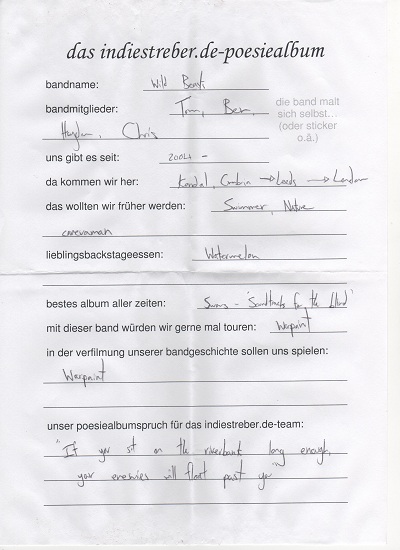 das indiestreber.de-poesiealbum
bandname: Wild Beasts
bandmitglieder: Tom, Ben,
die band malt
sich selbst...
(oder sticker
o.ä.)
Hayden, Chris
uns gibt es seit: 2004 -
da kommen wir her: Kendal, Cumbria → Leeds → London
das wollten wir früher werden: Swimmer, Nature
cameraman
lieblingsbackstageessen: Watermelon
bestes album aller zeiten: Swans - 'Soundtracks for the blind'
mit dieser band würden wir gerne mal touren: Warpaint
in der verfilmung unserer bandgeschichte sollen uns spielen:
Warpaint
unser poesiealbumspruch für das indiestreber.de-team:
"If you sit on the riverbank long enough,
your enemies will float past you"